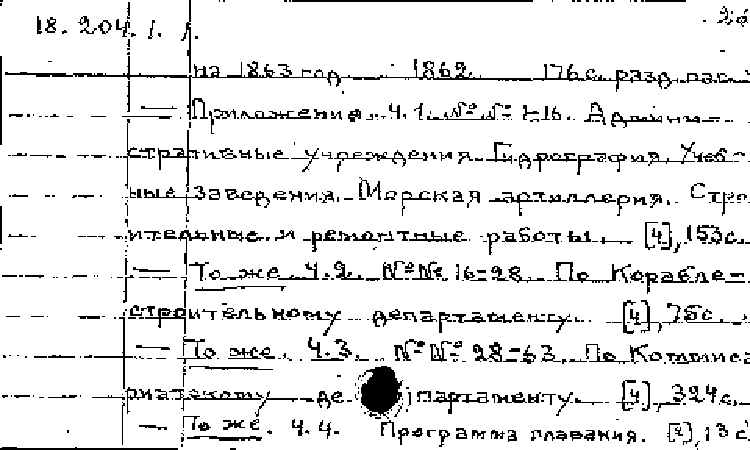 18.204.1. 1. 26
на 1863 год 1862. 176 с. разд. паг.
— Приложения. Ч.1. №№ 1-16. Админи-
стративные учреждения. Гидрография. Учеб-
ные заведения. Морская артиллерия. Стро
ительные и ремонтные работы. [4], 153с.
— То же. Ч.2. №№ 16-28. По Корабле-
строительному департаменту. [4], 75с.
— То же. Ч.3. №№ 28-63. По Комисса
риатскому департаменту. [4], 324с.
— То же. Ч.4. Программа плавания. [2], 13 с